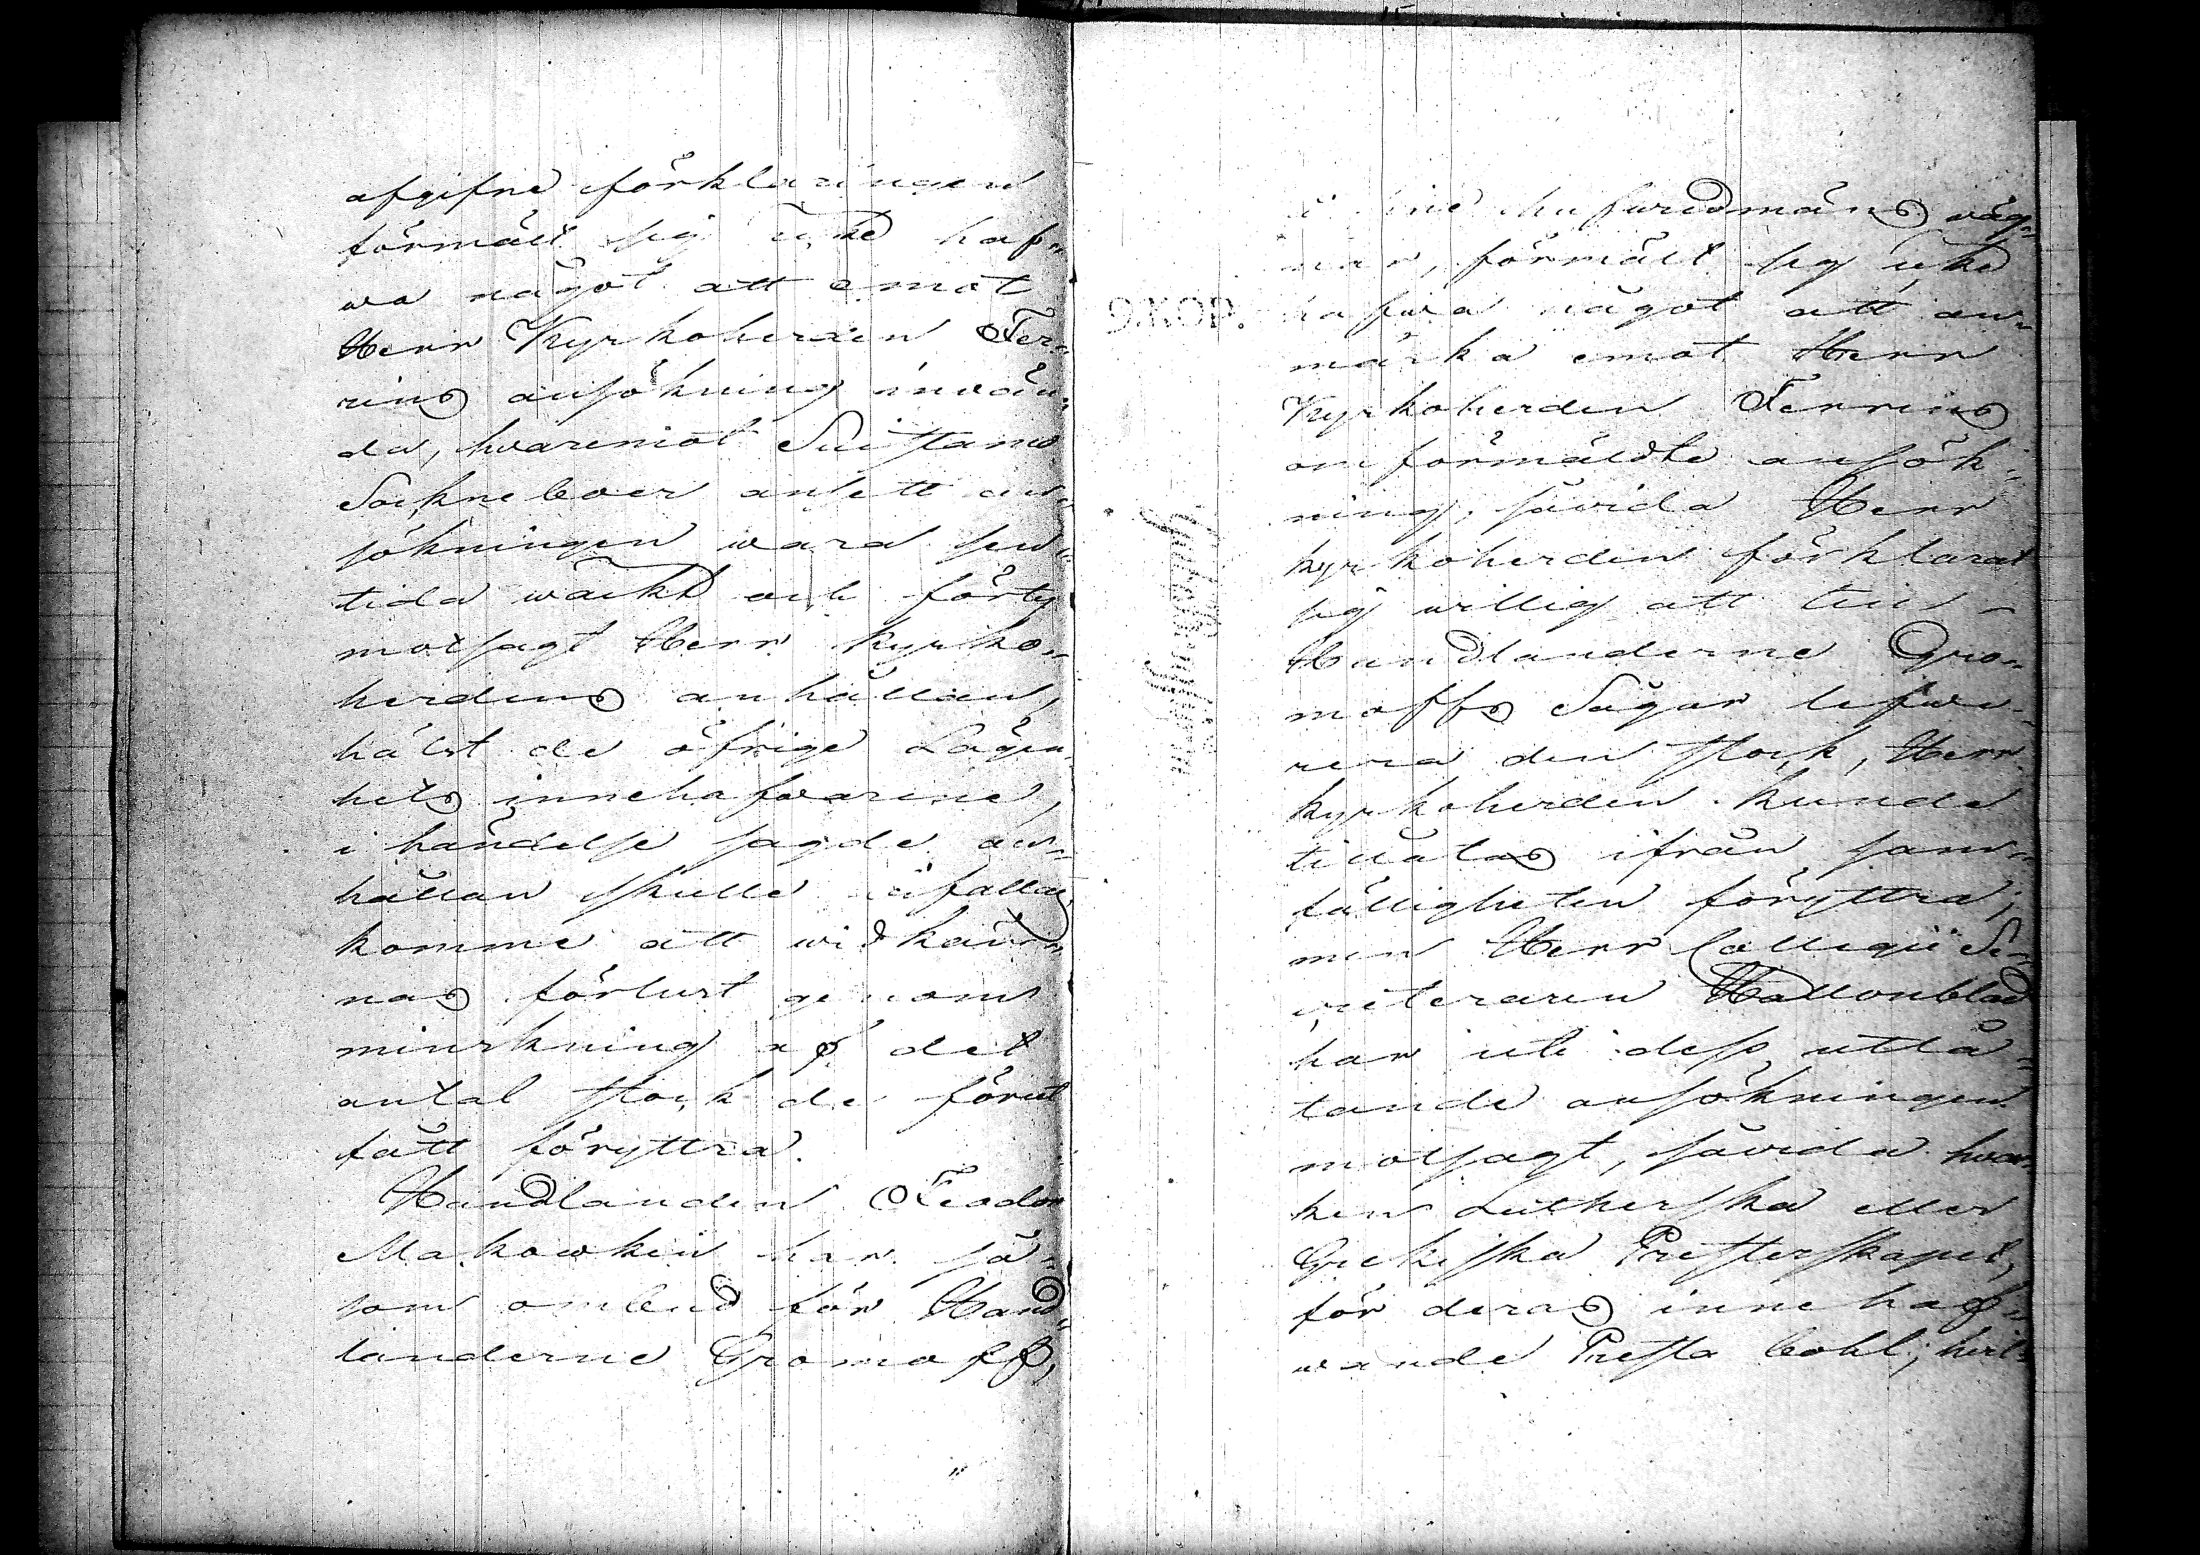 afgifne förklaringen
förmält sig icke haf-
wa något att emot
Herr Kyrkoherden Fer-
rins ansökning inwän-
da, hwaremot Suistamo
Sockneboer ansett an-
sökningen wara sen-
tida wäckt och förty
motsagt Herr Kyrko-
herdens anhållan,
hälst de öfrige Lägen-
hets innehafwarene,
i händelse sagde an-
hållan skulle bifallas,
komme att widkän-
nas förlust genom
minskning af det
antal stock de förut
fått föryttra.
Handlanden Feodor
Makowkin har så-
som ombud för Hand-
landerne Gromoff,
sine hufwudmäns väg-
nar, förmält sig icke
9.KOP.
hafwa något att an-
märka emot Herr
Kyrkoherden Ferrins
omförmäldte ansök-
ning, såvida Herr
Kyrkoherden förklarat
sig willig att till
Handlanderne Gro-
moffs Sågar lefwe-
rera den stock, Herr
Kyrkoherden kunde
tillåtas ifrån sam-
fälligheten föryttra;
men Herr Collegii Se-
creteraren Hallonblad
har uti dess utlå-
tande ansökningen
motsagt, såvida hwar-
ken Lutherska eller
Grekiska Presterskapet,
för deras innehaf-
wande Presta bohl, hvil-